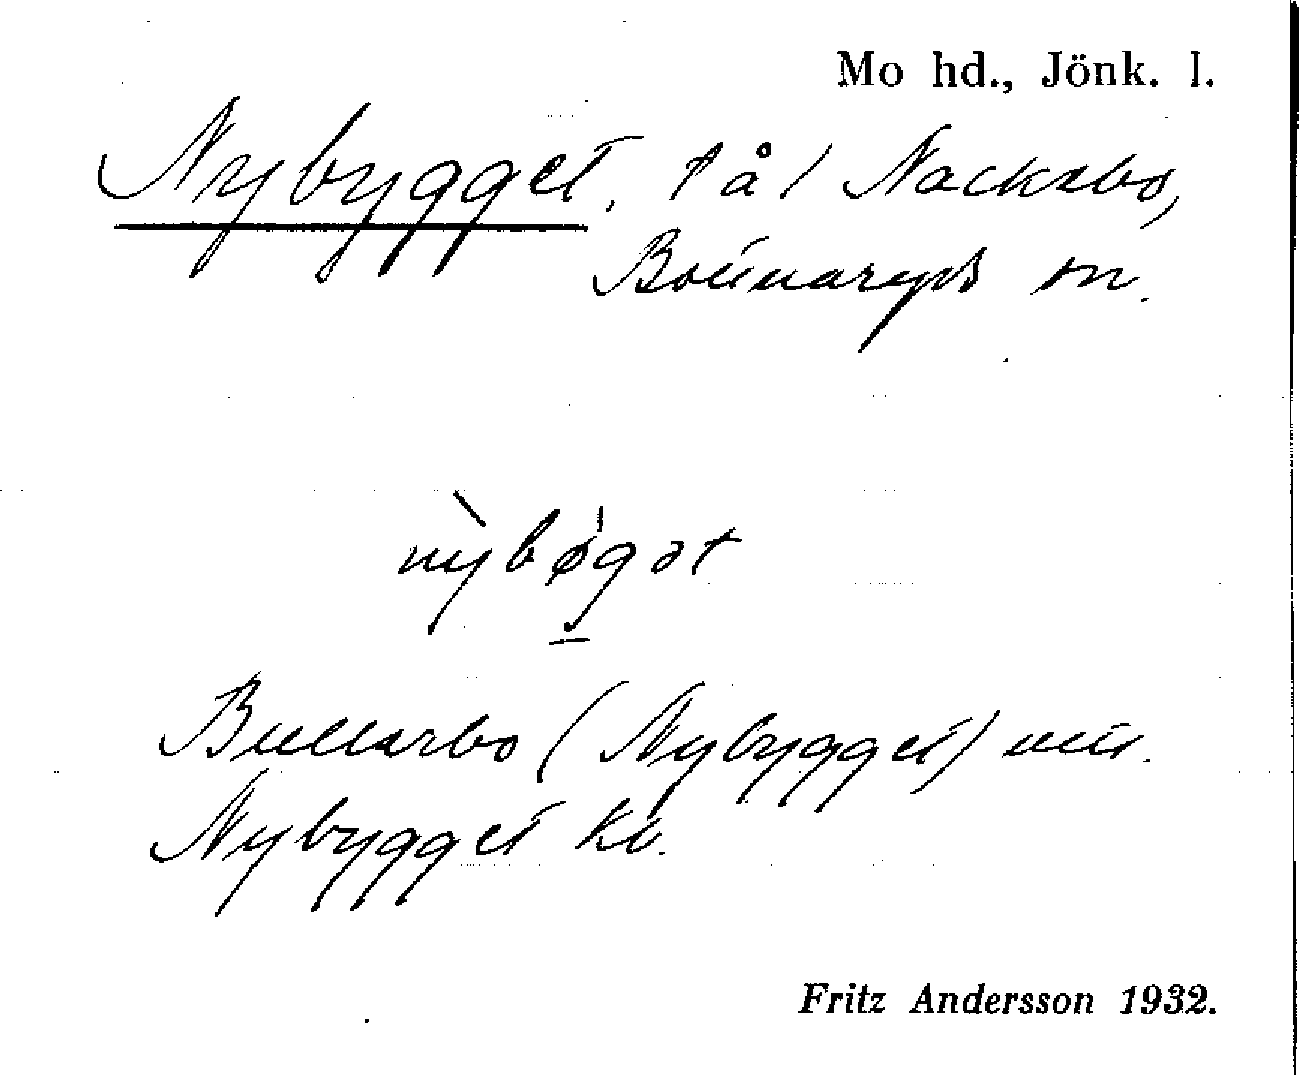 Mo hd., Jönk. l.
Nybygget, t å l Nacksbo,
Bottnaryds sn.
nỳbøgət
Bullarbo (Nybygget)
Nybygget kv.
Fritz Andersson 1932.